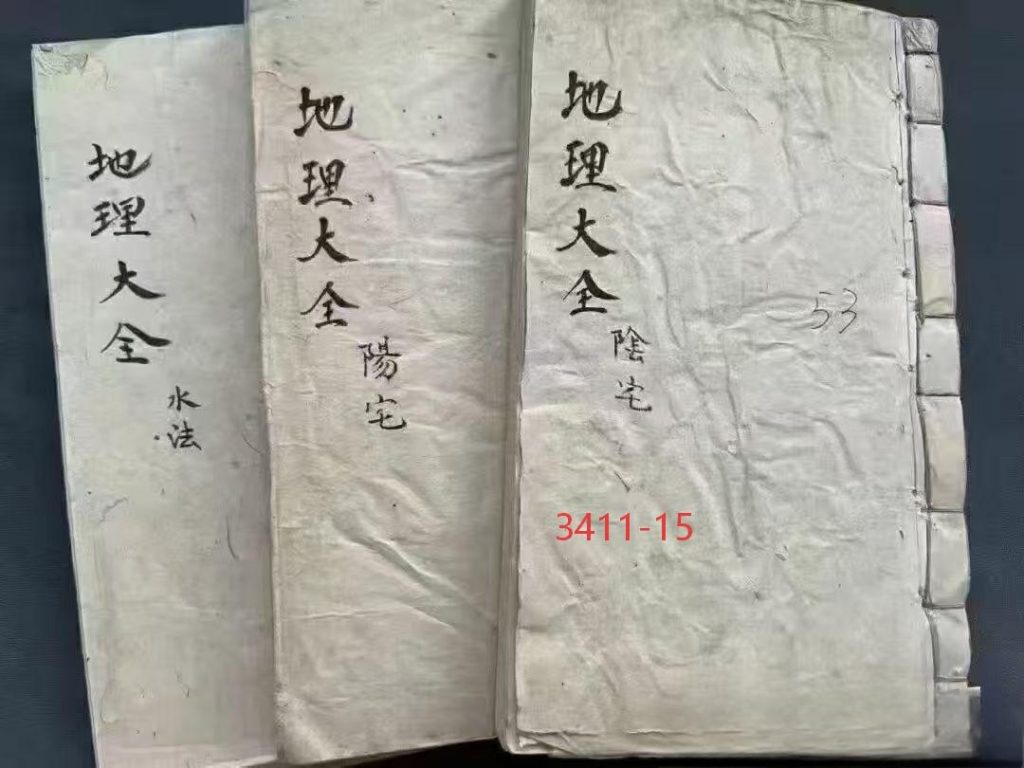 地理大全
陰宅
53
3411-15
地理大全
陽宅
地理大全
水法